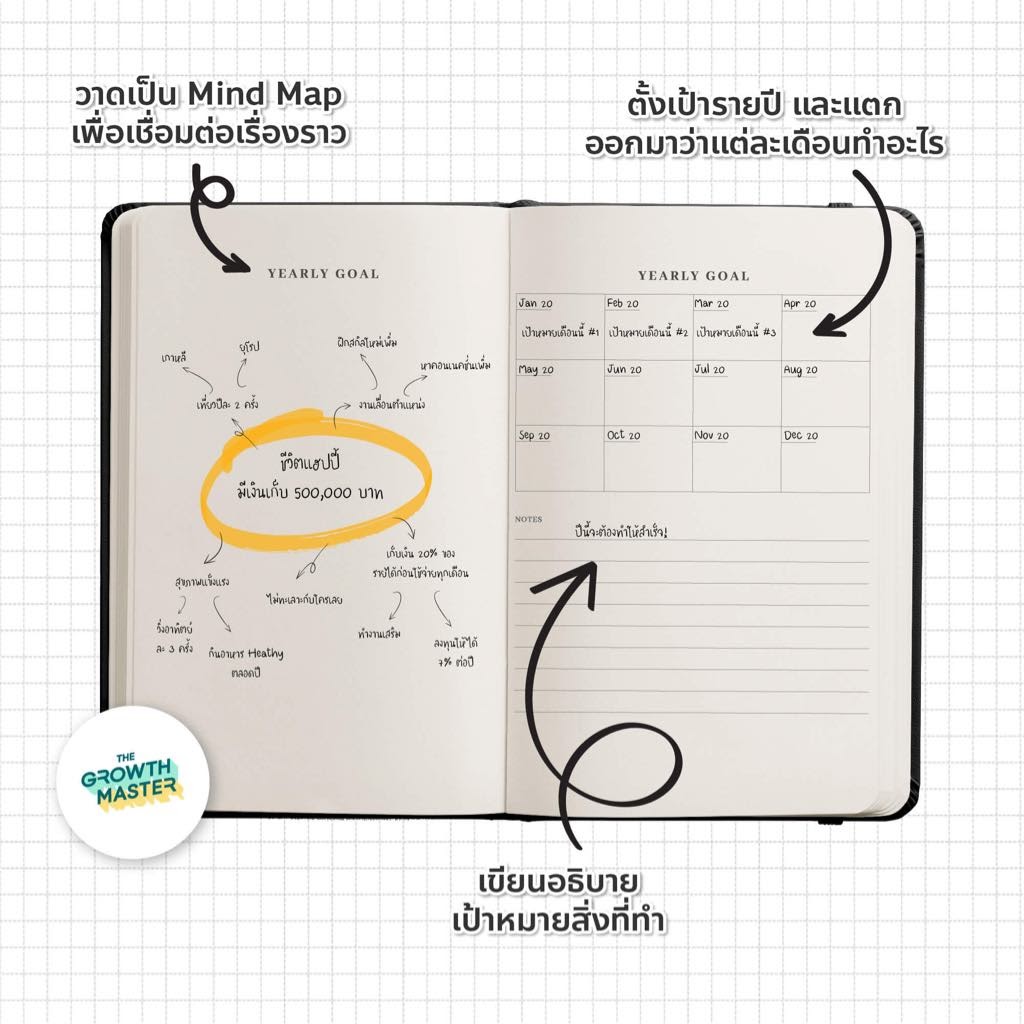 วาดเป็น Mind Map
เพื่อเชื่อมต่อเรื่องราว
ตั้งเป้ารายปี และแตก
ออกมาว่าแต่ละเดือนทำอะไร
YEARLY GOAL
เกาหลี
ยุโรป
ฝึกสกิลใหม่เพิ่ม
หาคอนเนคชั่นเพิ่ม
เที่ยวปีละ 2 ครั้ง
งานเลื่อนตำแหน่ง
ชีวิตแฮปปี้
มีเงินเก็บ 500,000 บาท
สุขภาพแข็งแรง
วิ่งอาทิตย์
ละ 3 ครั้ง
กินอาหาร Heathy
ตลอดปี
ไม่ทะเลาะกับใครเลย
เก็บเงิน 20% ของ
รายได้ก่อนใช้จ่ายทุกเดือน
ทำงานเสริม
ลงทุนให้ได้
7% ต่อปี
YEARLY GOAL
Jan 20 Feb 20 Mar 20 Apr 20
เป้าหมายเดือนนี้ #1 เป้าหมายเดือนนี้ #2 เป้าหมายเดือนนี้ #3
May 20 Jun 20 Jul 20 Aug 20
Sep 20 Oct 20 Nov 20 Dec 20
NOTES
ปีนี้จะต้องทำให้สำเร็จ!
THE
GROWTH
MASTER
เขียนอธิบาย
เป้าหมายสิ่งที่ทำ